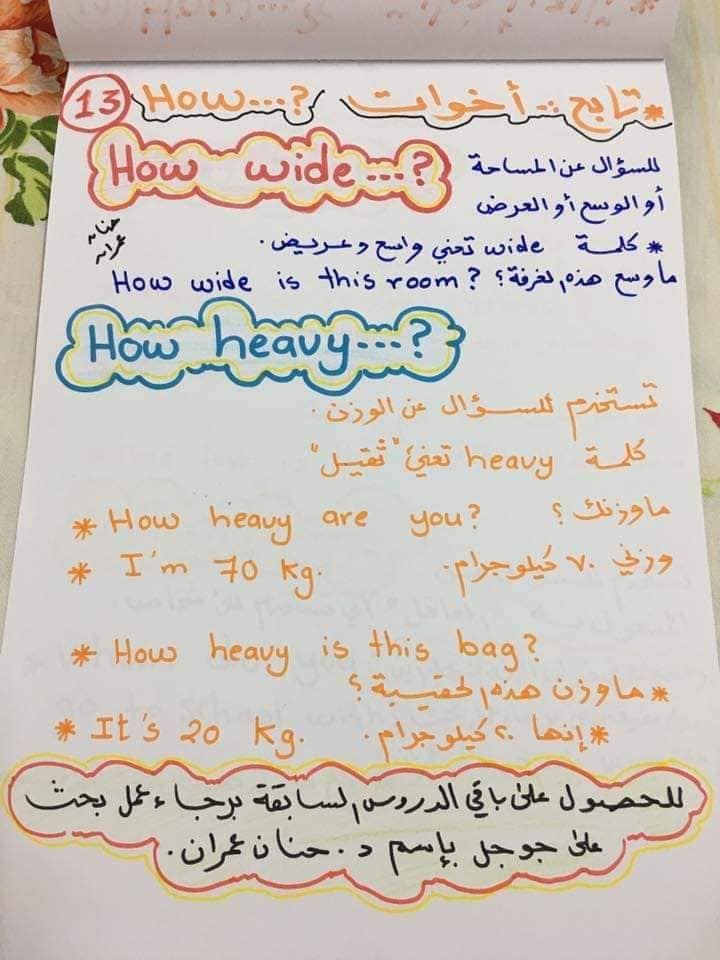 * تابع .. أخوات How...? 13
How wide...?
للسؤال عن المساحة
أو الوسع أو العرض
حنان
عمران
* كلمة wide تعني واسع وعريض.
ما وسع هذه الغرفة؟ How wide is this room?
How heavy...?
تستخدم للسؤال عن الوزن.
كلمة heavy تعني "ثقيل"
ما وزنك؟ How heavy are you? *
وزني ٧٠ كيلوجرام. I'm 70 kg. *
* How heavy is this bag?
* ما وزن هذه الحقيبة؟
* إنها ٢٠ كيلوجرام. It's 20 kg. *
للحصول على باقي الدروس السابقة برجاء عمل بحث
على جوجل بإسم د. حنان عمران.